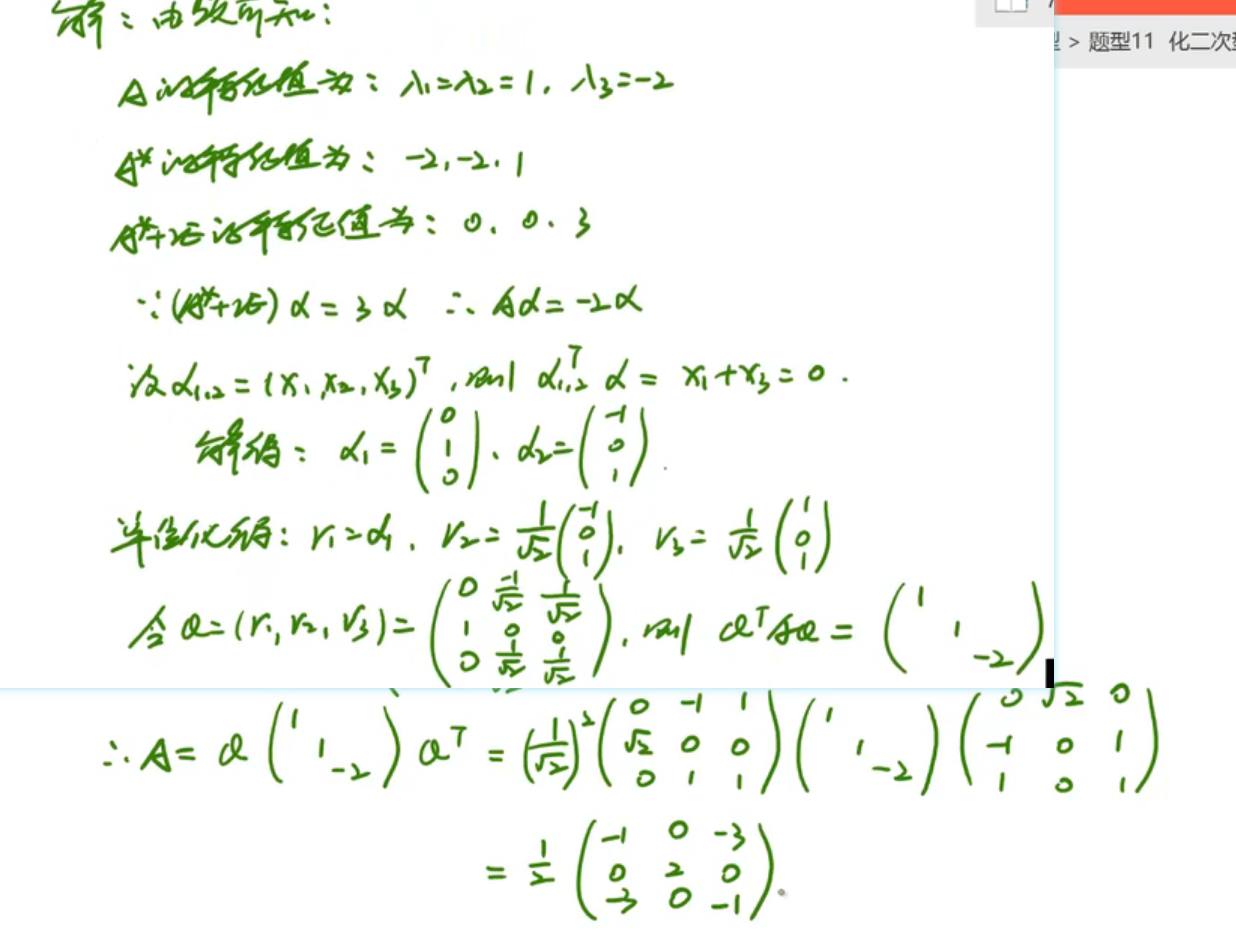 > 题型11 化二次
解：由题可知：
A的特征值为：λ₁=λ₂=1, λ₃=-2
A*的特征值为：-2, -2, 1
A*+2E的特征值为：0, 0, 3
∵(A*+2E)α=3α ∴Aα=-2α
设α₁,₂=(x₁,x₂,x₃)ᵀ, 则 α₁,₂ᵀα=x₁+x₃=0.
解得：α₁=(0 1 0), α₂=(-1 0 1).
单位化得：r₁=α₁, r₂=1/√2(-1 0 1), r₃=1/√2(1 0 1)
令Q=(r₁,r₂,r₃)=(0 -1/√2 1/√2; 1 0 0; 0 1/√2 1/√2), 则 QᵀAQ=(1 1 -2)
∴A=Q(1 1 -2)Qᵀ=(1/√2)²(0 -1 1; √2 0 0; 0 1 1)(1 1 -2)(0 √2 0; -1 0 1; 1 0 1)
=1/2(-1 0 -3; 0 2 0; -3 0 -1).